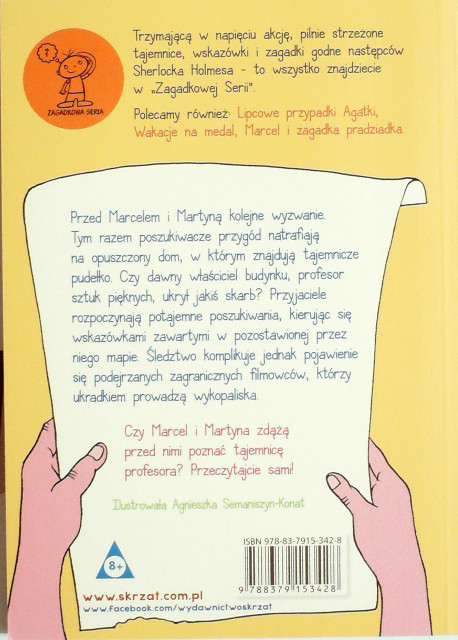 ?
ZAGADKOWA SERIA
Trzymającą w napięciu akcję, pilnie strzeżone
tajemnice, wskazówki i zagadki godne następców
Sherlocka Holmesa - to wszystko znajdziecie
w „Zagadkowej Serii”.
Polecamy również: Lipcowe przypadki Agatki,
Wakacje na medal, Marcel i zagadka pradziadka.
Przed Marcelem i Martyną kolejne wyzwanie.
Tym razem poszukiwacze przygód natrafiają
na opuszczony dom, w którym znajdują tajemnicze
pudełko. Czy dawny właściciel budynku, profesor
sztuk pięknych, ukrył jakiś skarb? Przyjaciele
rozpoczynają potajemne poszukiwania, kierując się
wskazówkami zawartymi w pozostawionej przez
niego mapie. Śledztwo komplikuje jednak pojawienie
się podejrzanych zagranicznych filmowców, którzy
ukradkiem prowadzą wykopaliska.
Czy Marcel i Martyna zdążą
przed nimi poznać tajemnicę
profesora? Przeczytajcie sami!
Ilustrowała Agnieszka Semaniszyn-Konat
ISBN 978-83-7915-342-8
8+
9 788379 153428
www.skrzat.com.pl
www.facebook.com/wydawnictwoskrzat